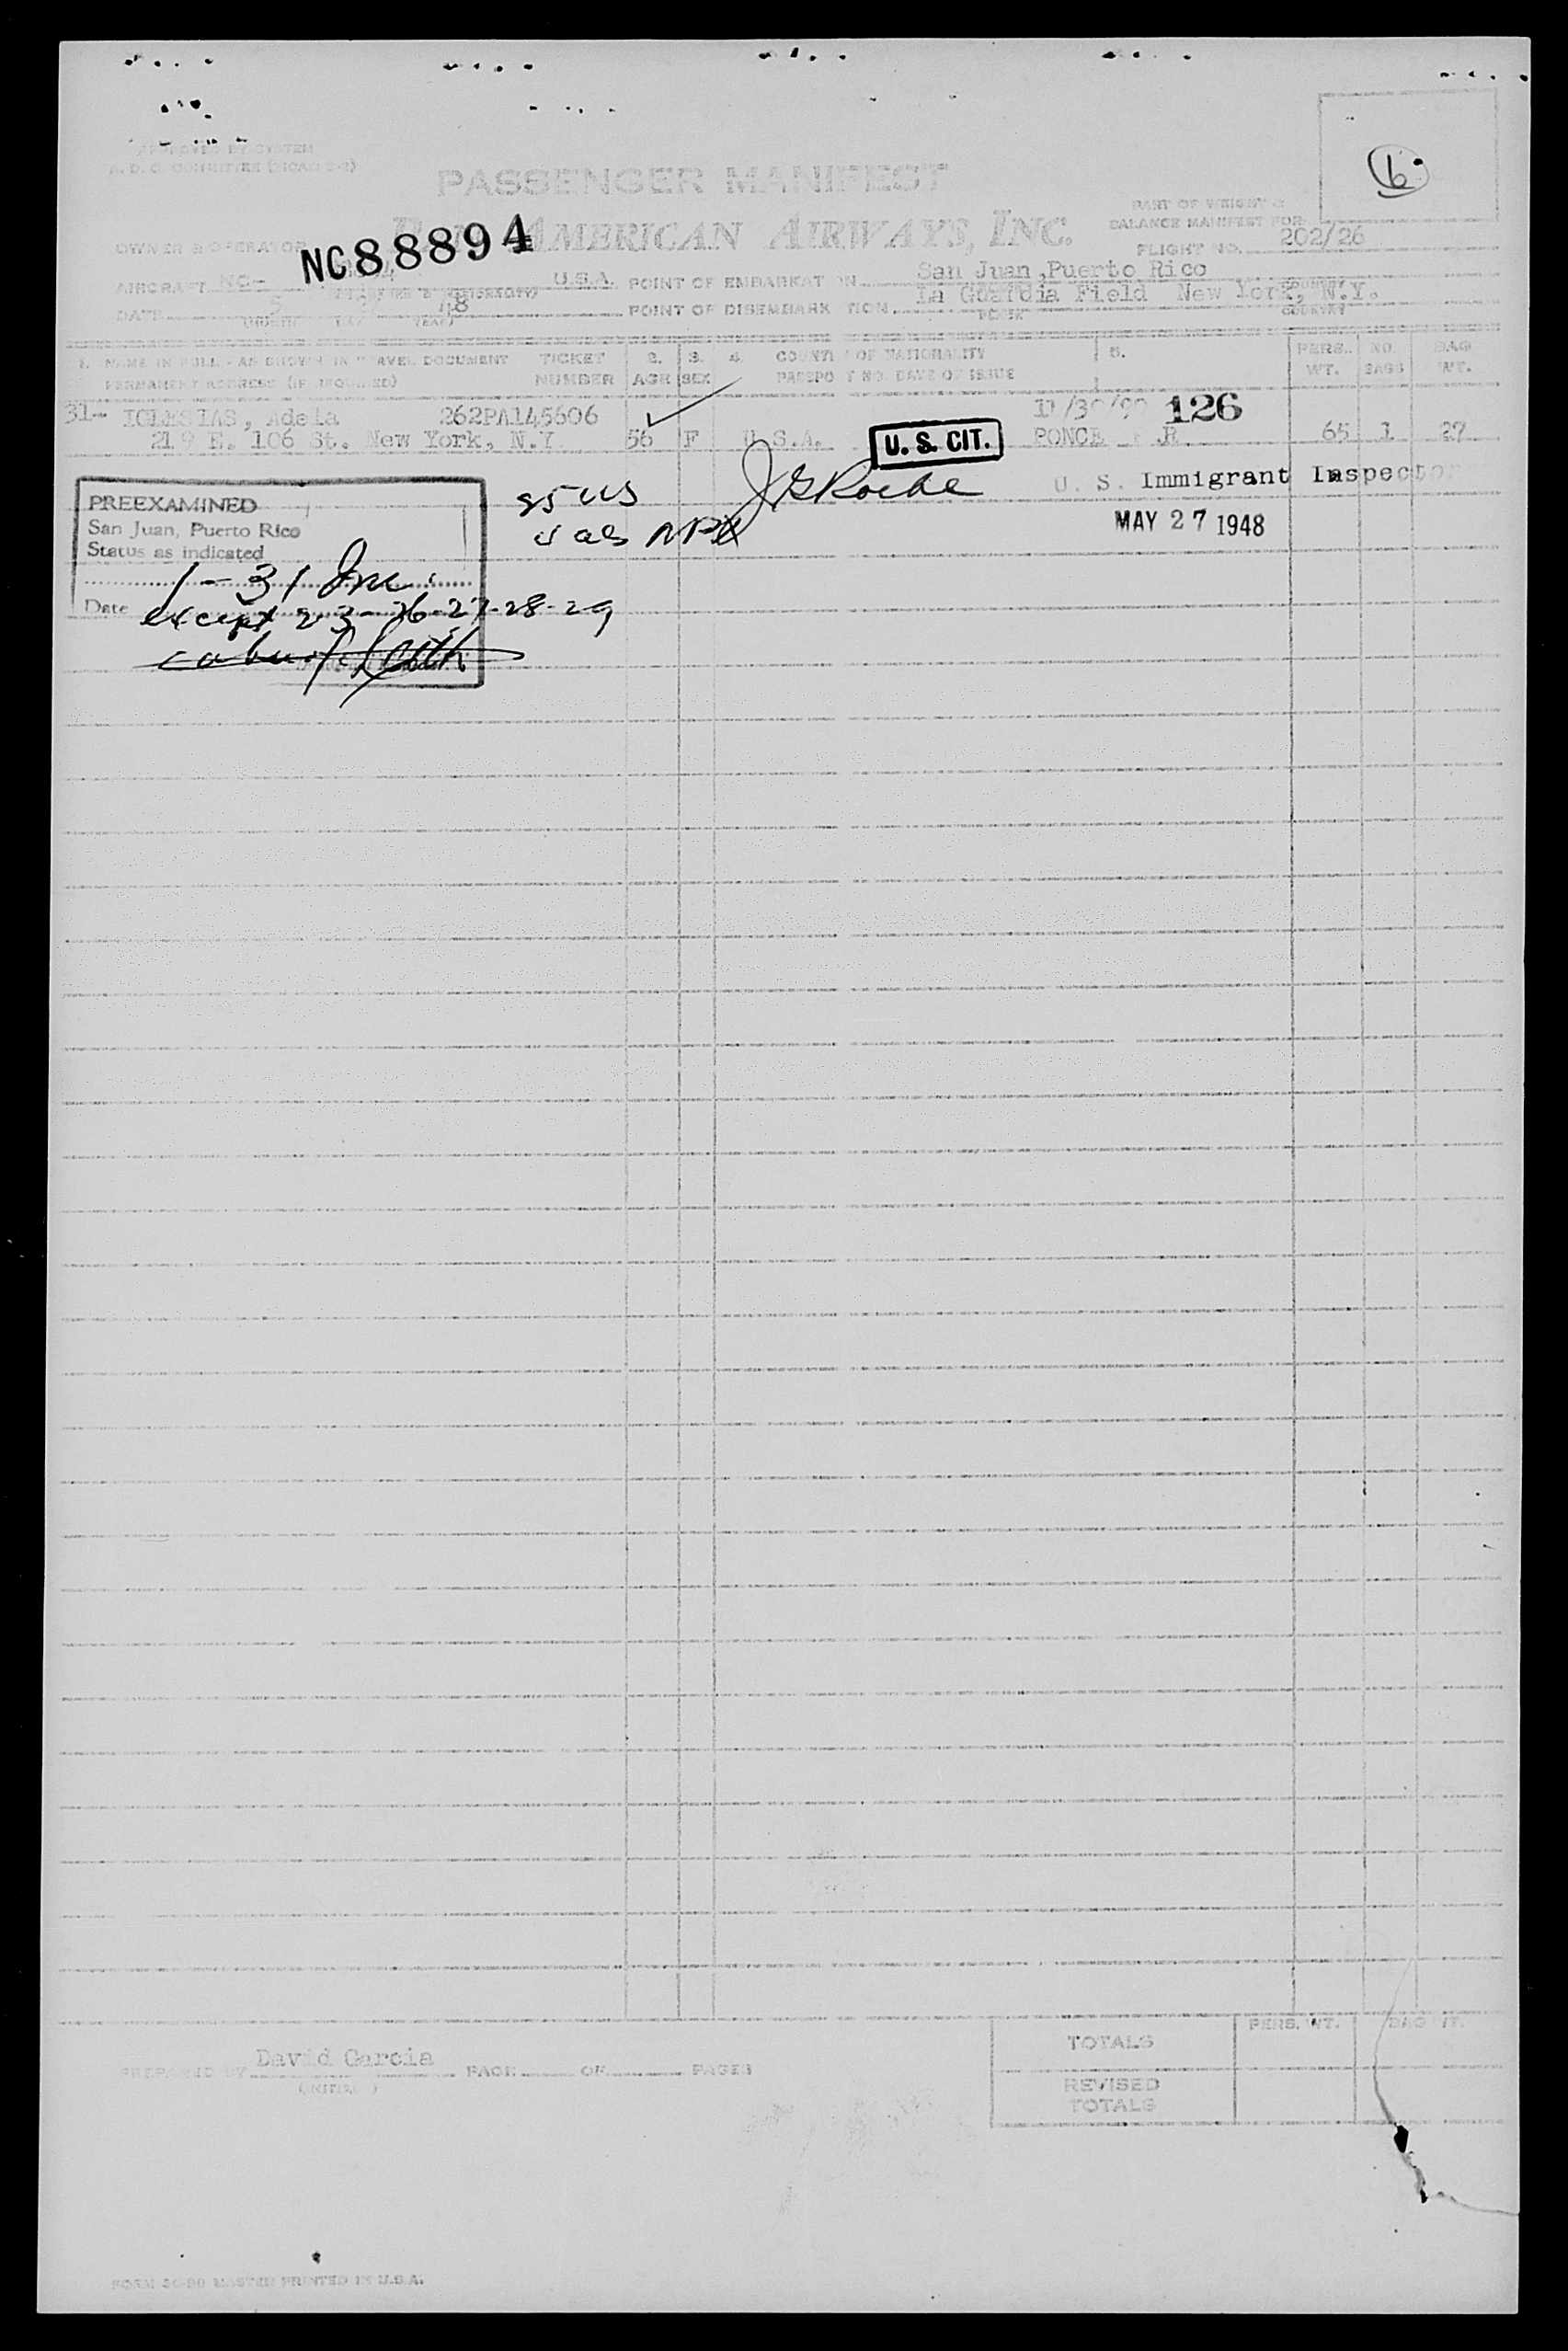 APPROVED BY SYSTEM
PASSENGER MANIFEST
AMERICAN AIRWAYS, INC.
PART OF WEIGHT &
BALANCE MANIFEST FOR
FLIGHT NO. 202/26
OWNER & OPERATOR
NC88894
AIRCRAFT NC- U.S.A. POINT OF EMBARKATION San Juan, Puerto Rico
DATE 5 48 POINT OF DISEMBARKATION La Guardia Field New York, N.Y.
1. NAME IN FULL - AS SHOWN IN TRAVEL DOCUMENT TICKET 2. 3. 4. COUNTRY OF NATIONALITY 5. PERS. NO. BAG
PERMANENT ADDRESS (IF REQUIRED) NUMBER AGE SEX PASSPORT NO. DATE OF ISSUE WT. BAGS WT.
31- IGLESIAS, Adela 262PA145606 126
219 E. 106 St. New York, N.Y. 56 F U.S.A. U. S. CIT. PONCE 65 1 27
PREEXAMINED
San Juan, Puerto Rico
Status as indicated
1-31 Inc.
Date except 2-3-26-27-28-29
25 US
JGRoche U. S. Immigrant Inspector
MAY 27 1948
PREPARED BY David Garcia PAGE OF PAGES
TOTALS PERS. WT. BAG WT.
REVISED
TOTALS
MASTER PRINTED IN U.S.A.